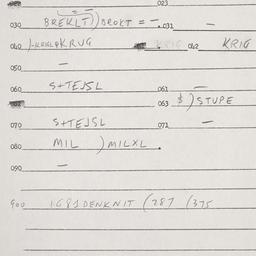 023
030 BREKLT)) BROKT = -. 031 -
040 KRUG 042 KRIG
050 -
060 S+TEJSL 061 -
063 $) STUPE
070 S+TEJSL 071 -
080 MIL ) MILXL .
090 -
900 1681 DENKNIT (287 (375